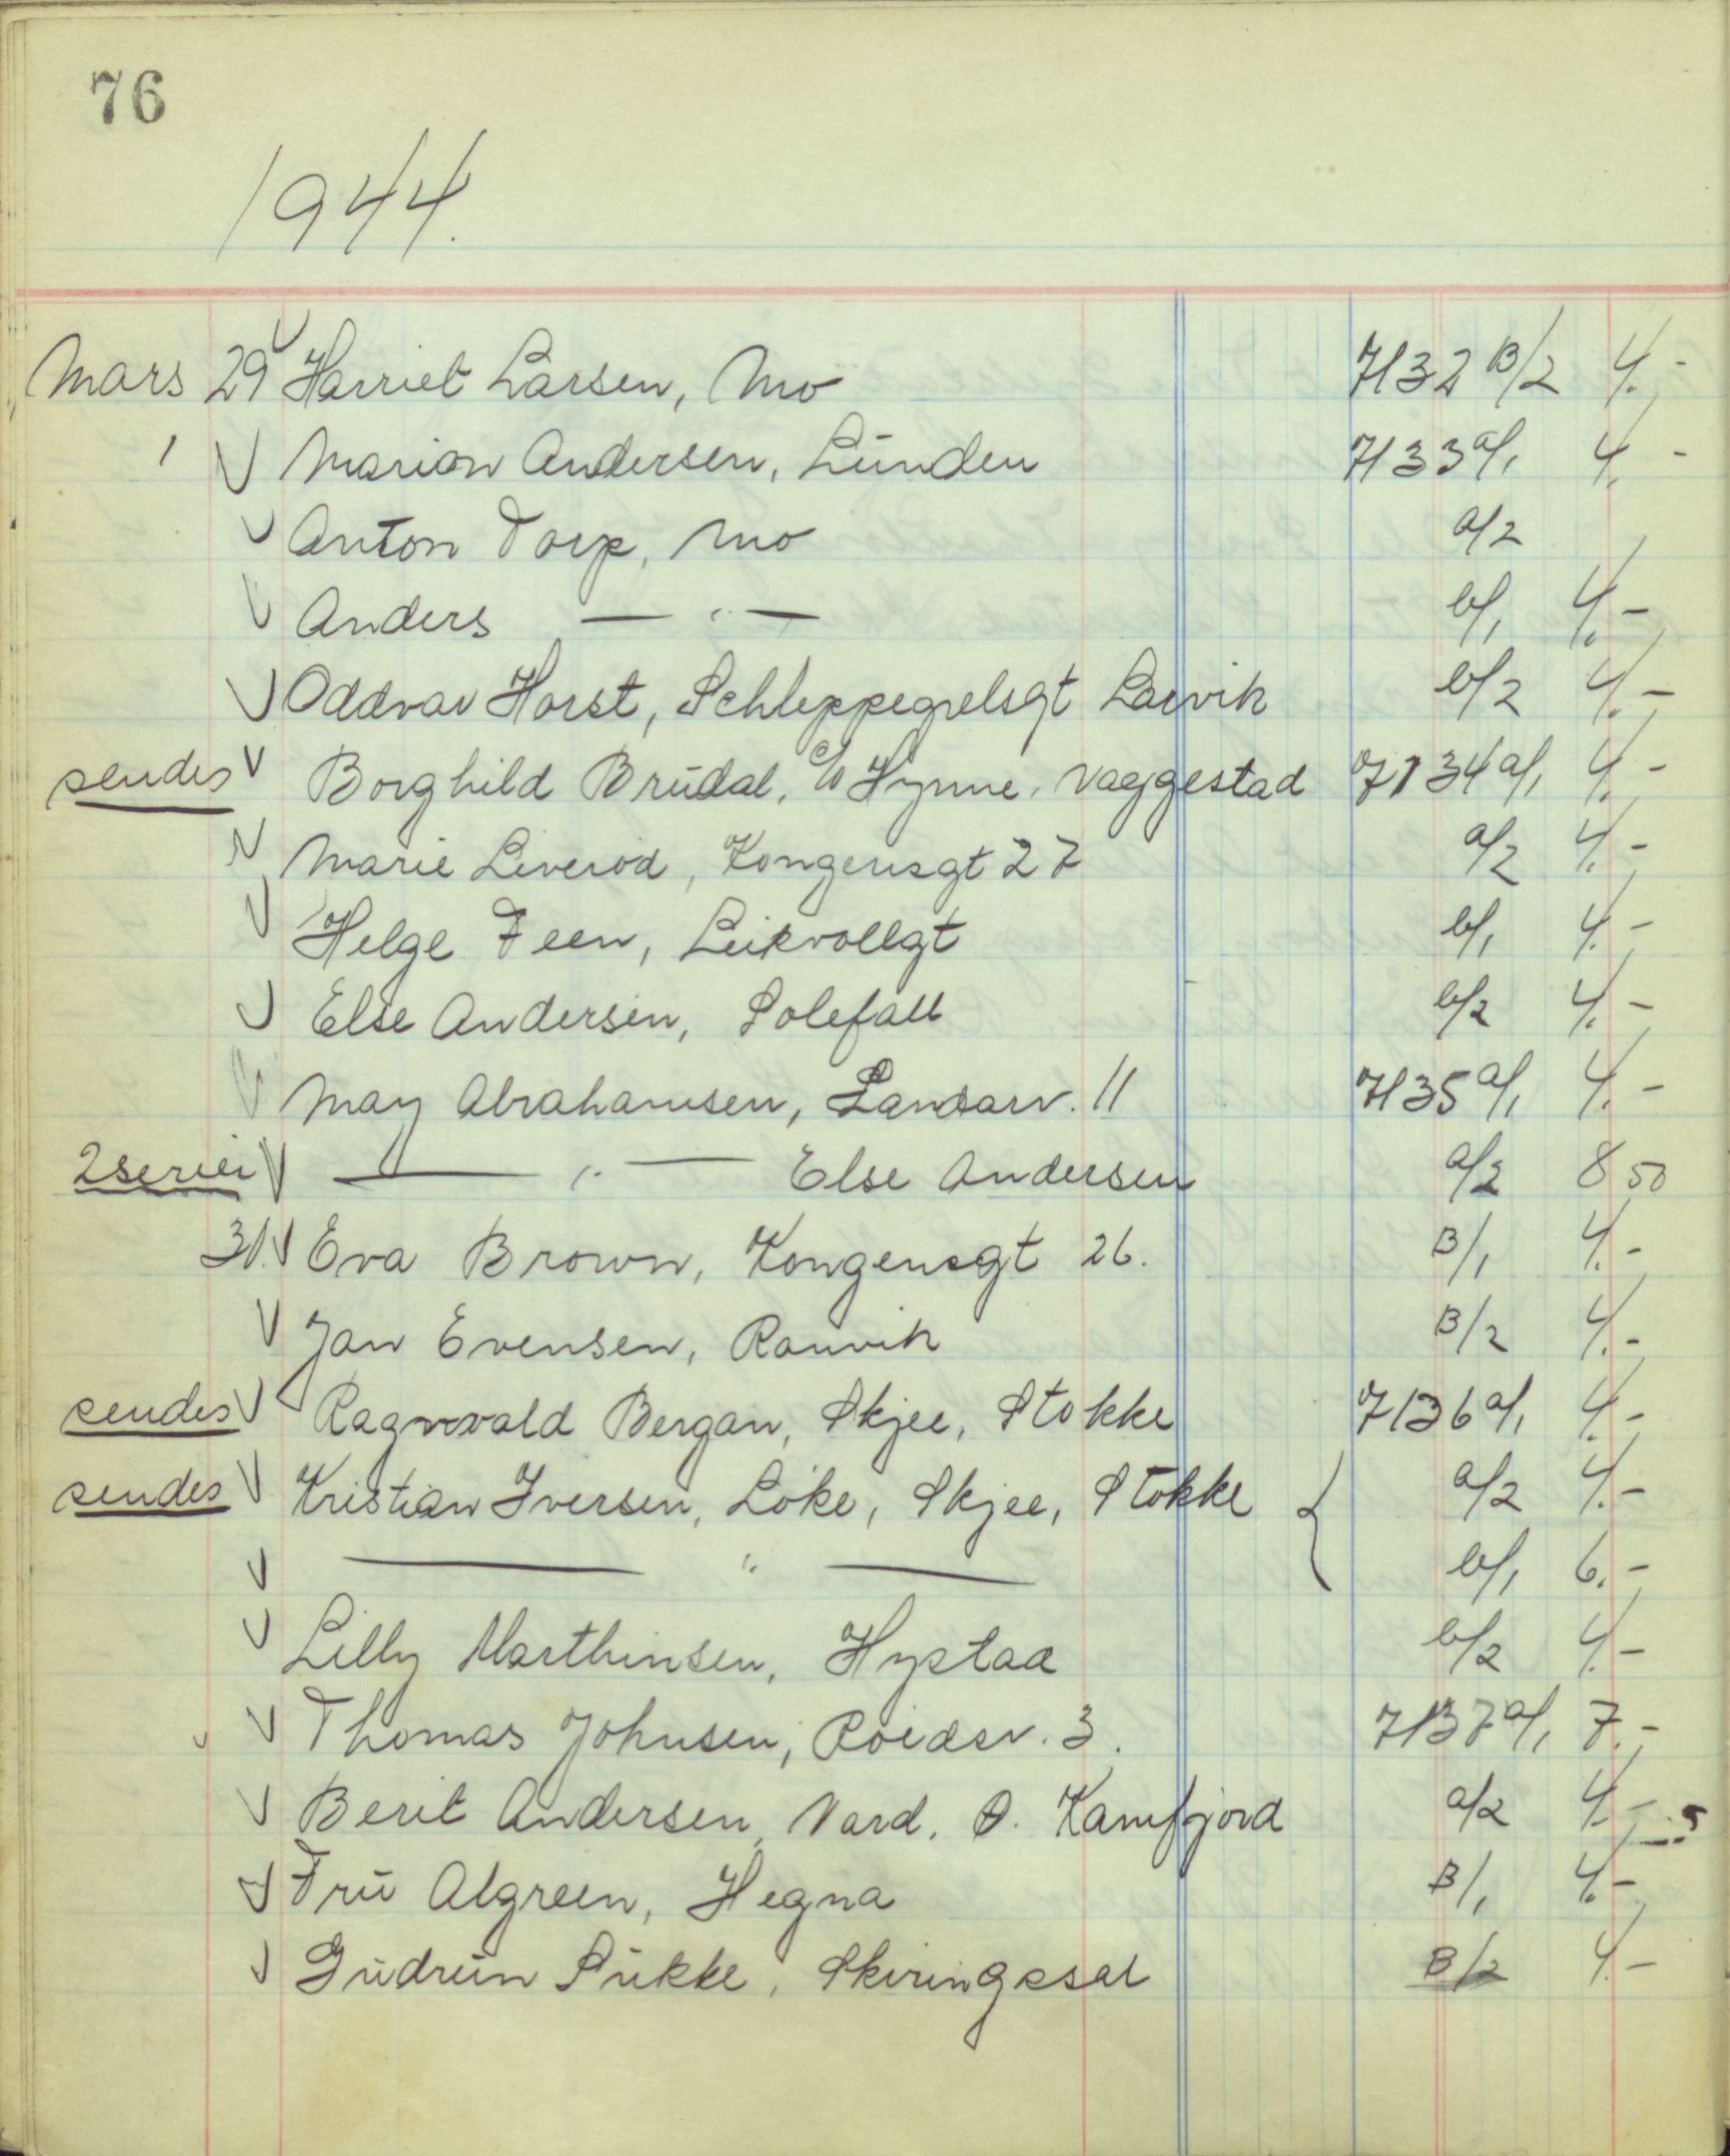 76
1944.
Mars 29 Harriet Larsen, Mo 7132 B/2 4.-
Marion Andersen, Lunden 7133 a/1 4.-
Anton Torp, Mo a/2
Anders — " — b/1 4.-
Oddvar Horst, Schleppegrelsgt Larvik b/2 4.-
sendes Borghild Brudal, c/o Hynne, Vaggestad 7134 a/1 4.-
Marie Liverød, Kongensgt 27 a/2 4.-
Helge Feen, Leikvollgt b/1 4.-
Else Andersen, Solefall b/2 4.-
May Abrahamsen, Landsrv. 11 7135 a/1 4.-
2 serier — " — Else Andersen a/2 8 50
31. Eva Brown, Kongensgt 26. B/1 4.-
Jan Evensen, Ranvik B/2 4.-
sendes Ragnvald Bergan, Skjee, Stokke 7136 a/1 4.-
sendes Kristian Iversen, Løke, Skjee, Stokke { a/2 4.-
— " — b/1 6.-
Lilly Marthinsen, Hystad b/2 4.-
Thomas Johnsen, Roedsv. 3. 7137 a/1 7.-
Berit Andersen, Vard. Ø. Kamfjord a/2 4.-
Fru Algreen, Hegna B/1 4.-
Gudrun Sukke, Skiringssal B/2 4.-